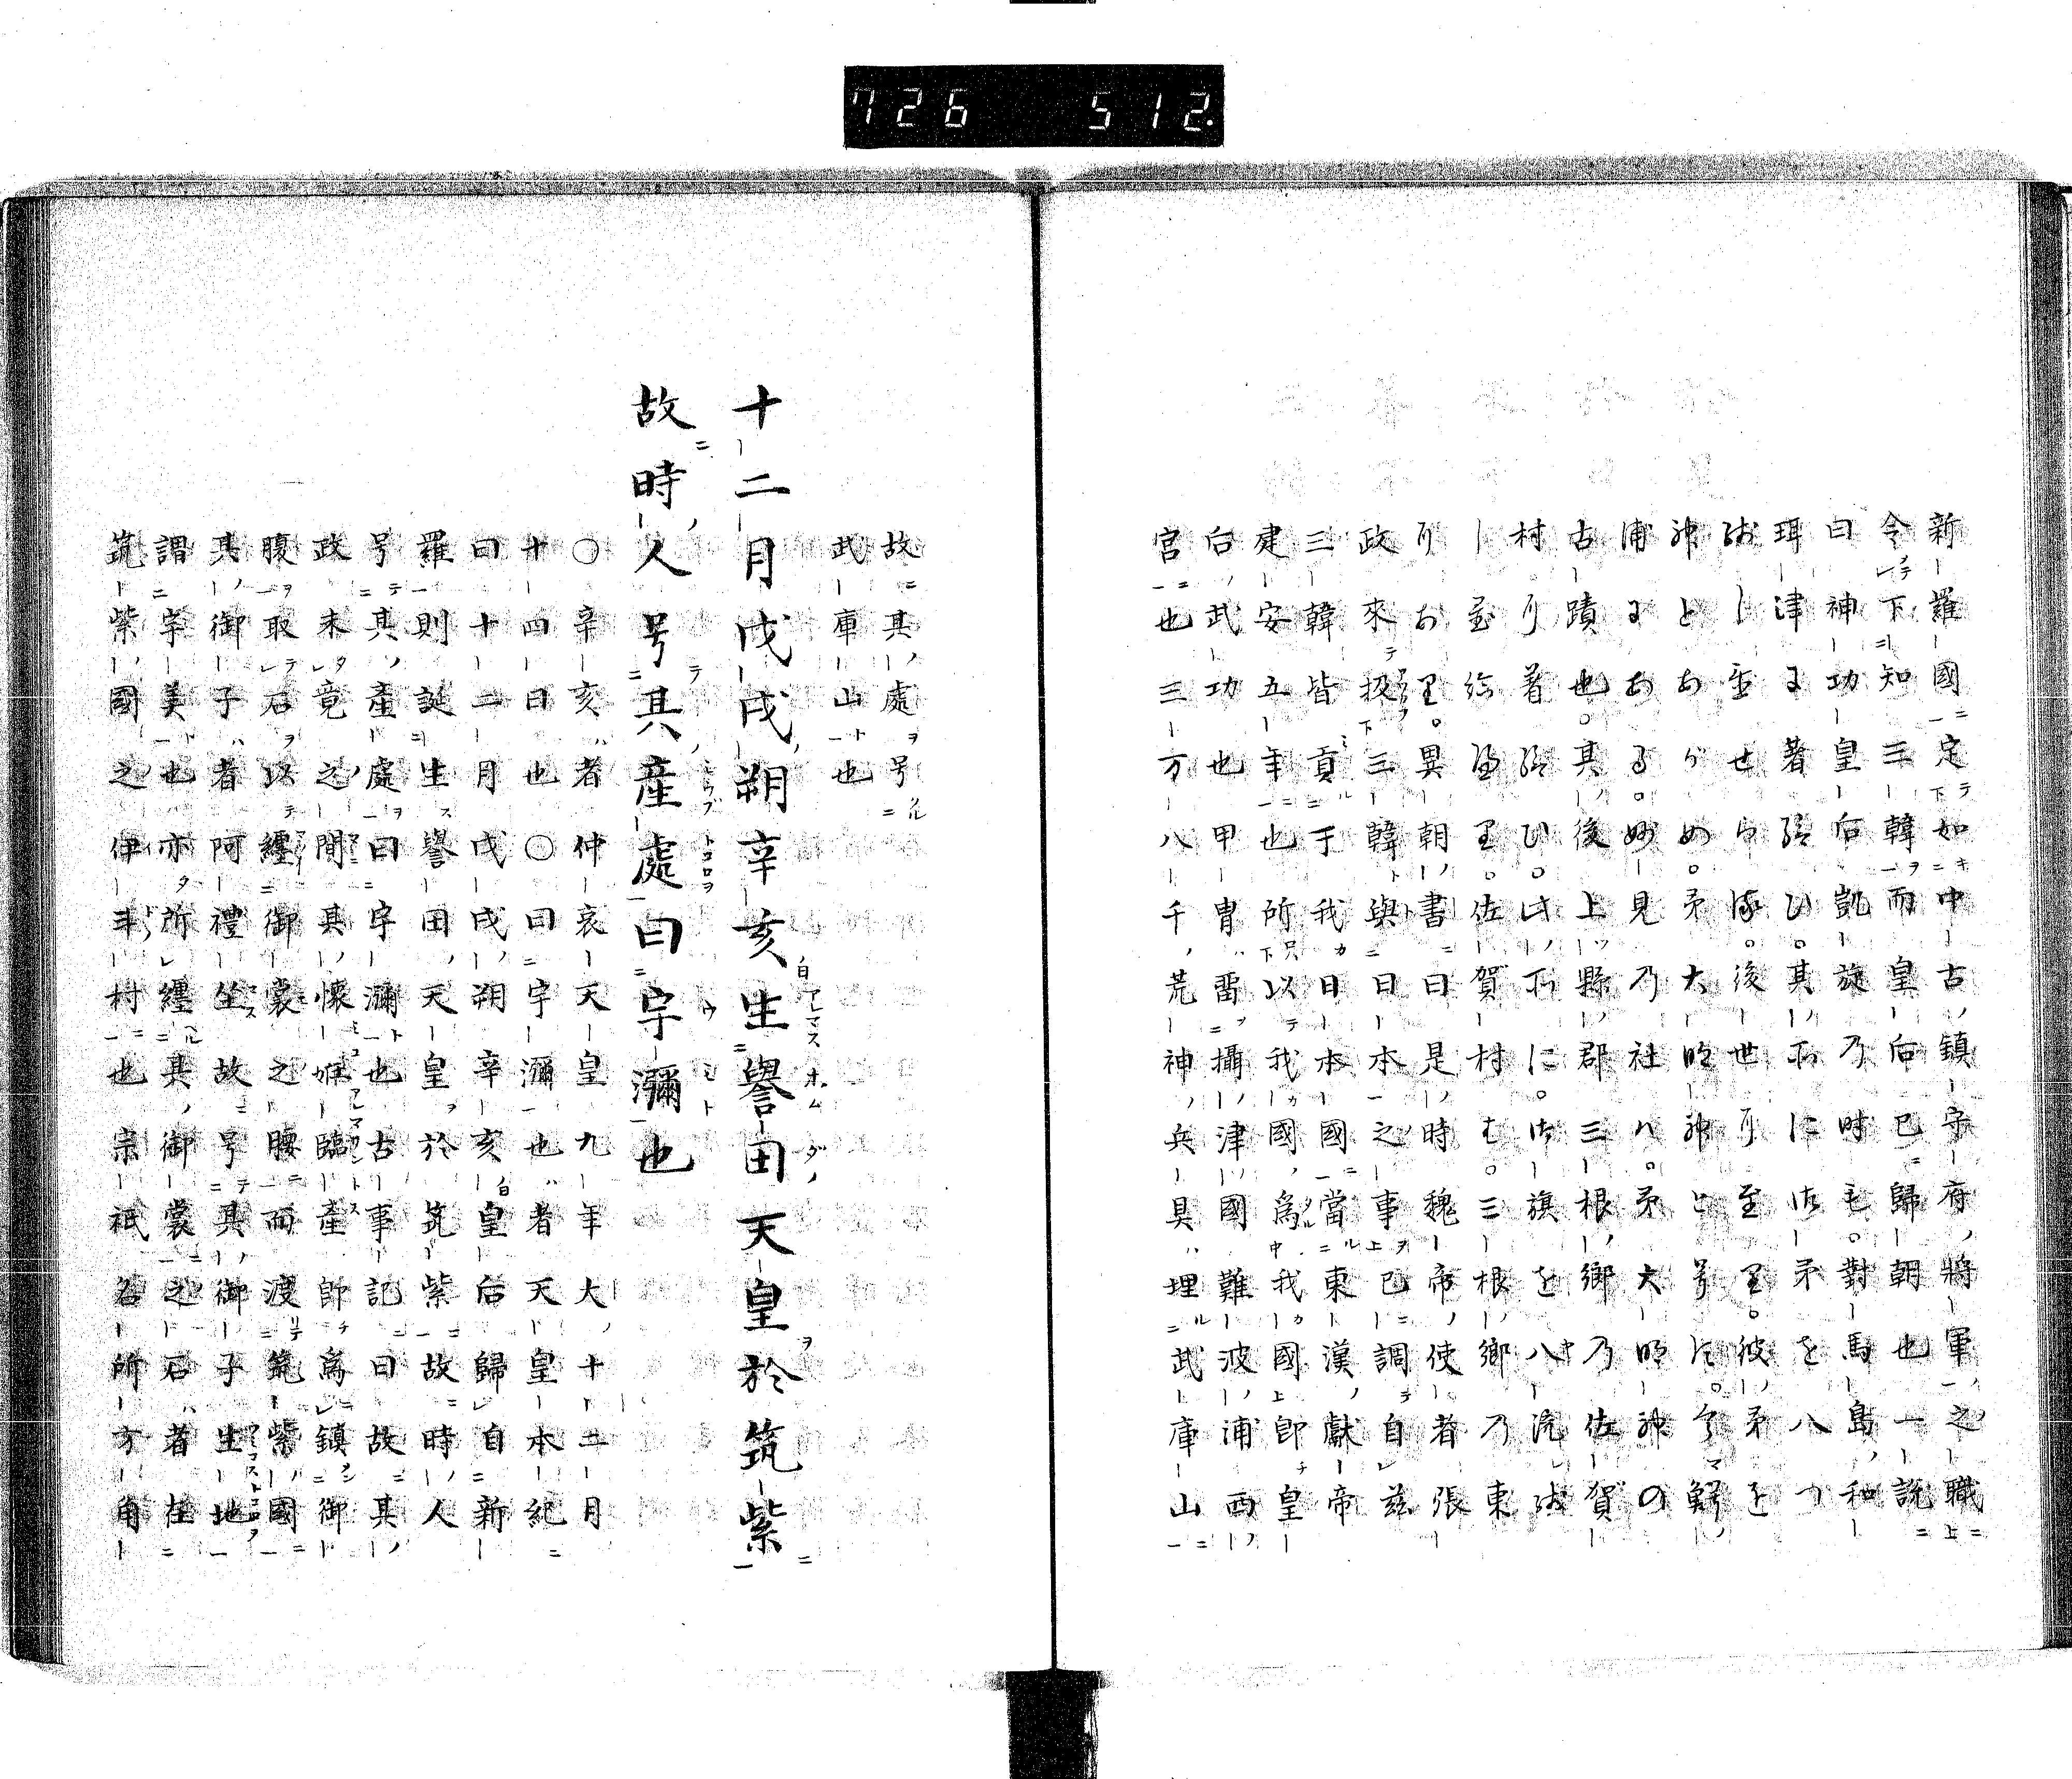 726 512.
新羅國定如中古鎮守府將軍之職
令下知三韓而皇后已歸朝也一說
曰神功皇后凱旋乃時毛對馬島和
珥津ま著給ひ。其所に御矛を八つ
殘し置せ後世り至里。彼矛を
神とあがめ。矛大明神と号た。今鰐ノ
浦まある。妙見乃社ハ。矛大明神の
古蹟也。其後上縣郡三根郷乃佐賀
村り着給ひ。此所に。御旗を八流殘
し置給ふ里。佐賀村も。三根郷乃東
りあ里。異朝書曰是時魏帝使者張
政來扱三韓與日本之事已調自茲
三韓皆貢于我日本國當東漢獻帝
建安五年也所以我國為我國即皇
后武功也甲冑畱攝津國難波浦西
宮也三方八千荒神兵具埋武庫山
故其處号
武庫山也
十二月戊戌朔辛亥生譽田天皇於筑紫
故時人号其產處曰宇瀰也
〇辛亥者仲哀天皇九年大十二月
十四日也〇曰宇瀰也者天皇本紀
曰十二月戊戌朔辛亥皇后歸自新
羅則誕生譽田天皇於筑紫故時人
号其產處曰宇瀰也古事記曰故其
政未竟之間其懷妊臨產即為鎮御
腹取石以纏御裳之腰而渡筑紫國
其御子者阿禮坐故号其御子生地
謂宇美也亦所纏其御裳之石者在
筑紫國之伊斗村也宗祇名所方角